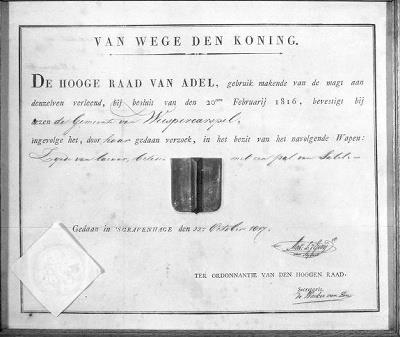 VAN WEGE DEN KONING.
DE HOOGE RAAD VAN ADEL, gebruik makende van de magt aan
denzelven verleend, bij besluit van den 20sten Februarij 1816, bevestigt bij
dezen de Gemeente van Weespercarspel,
ingevolge het, door haar gedaan verzoek, in het bezit van het navolgende Wapen:
van met een pal van Sabel.
Gedaan in 'SGRAVENHAGE den 22 October 1817.
TER ORDONNANTIE VAN DEN HOOGEN RAAD.